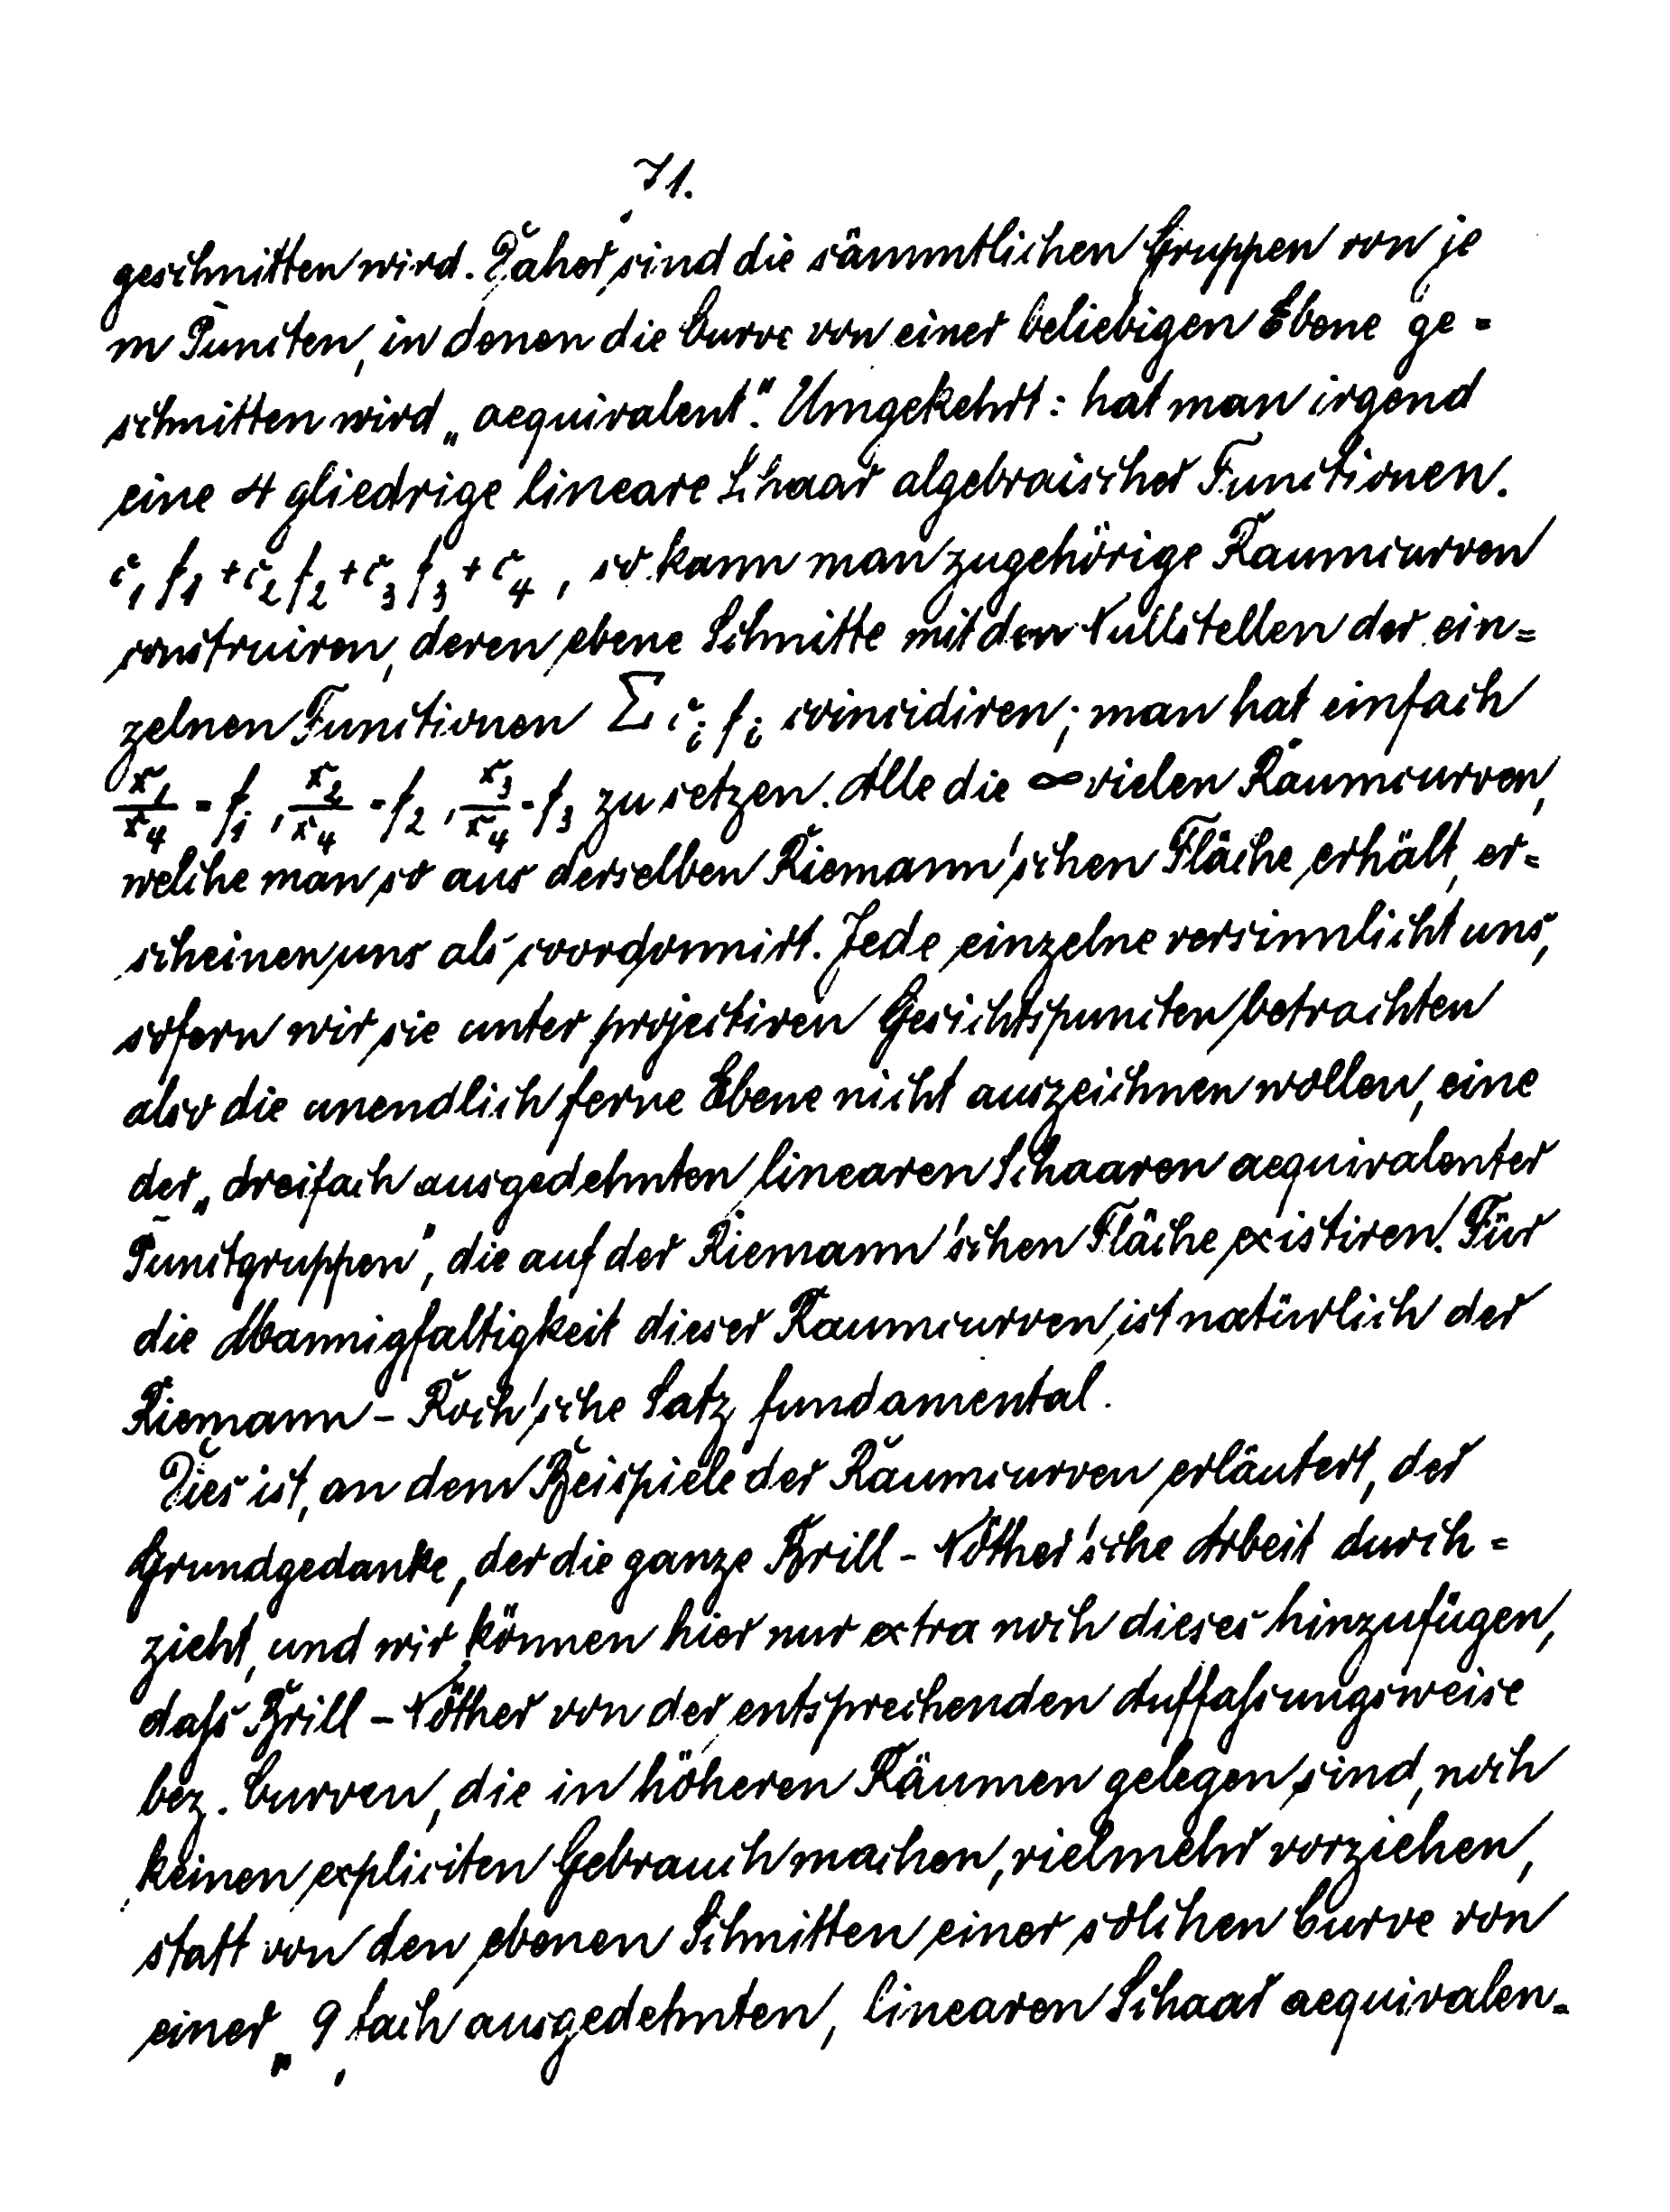 71.
geschnitten wird. Daher sind die sämmtlichen Gruppen von je
m Puncten, in denen die Curve von einer beliebigen Ebene ge=
schnitten wird „aequivalent“. Umgekehrt: hat man irgend
eine 4 gliedrige lineare Schaar algebraischer Functionen.
c₁f₁ + c₂f₂ + c₃f₃ + c₄, so kann man zugehörige Raumcurven
construiren, deren ebene Schnitte mit den Nullstellen der ein=
zelnen Functionen Σ cᵢfᵢ coincidiren; man hat einfach
x₁/x₄ = f₁, x₂/x₄ = f₂, x₃/x₄ = f₃ zu setzen. Alle die ∞ vielen Raumcurven,
welche man so aus derselben Riemann'schen Fläche erhält, er=
scheinen uns als coordonnirt. Jede einzelne versinnlicht uns,
sofern wir sie unter projectiven Gesichtspuncten betrachten
also die unendlich ferne Ebene nicht auszeichnen wollen, eine
der „dreifach ausgedehnten linearen Schaaren aequivalenter
Punctgruppen“, die auf der Riemann'schen Fläche existiren. Für
die Mannigfaltigkeit dieser Raumcurven ist natürlich der
Riemann-Roch'sche Satz fundamental.
Dies ist, an dem Beispiele der Raumcurven erläutert, der
Grundgedanke, der die ganze Brill-Nöther'sche Arbeit durch=
zieht, und wir können hier nur extra noch dieses hinzufügen,
daſs Brill-Nöther von der entsprechenden Auffaſsungsweise
bez. Curven, die in höheren Räumen gelegen sind, noch
keinen expliciten Gebrauch machen, vielmehr vorziehen,
statt von den ebenen Schnitten einer solchen Curve von
einer „q fach ausgedehnten, linearen Schaar aequivalen=